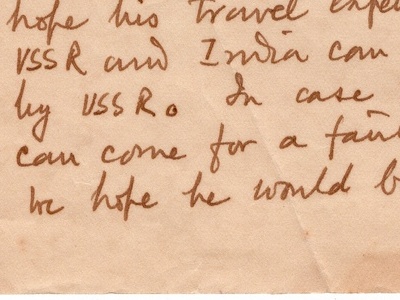 hope his travel expe
USSR and India can
by USSR. In case
can come for a fair
We hope he would b